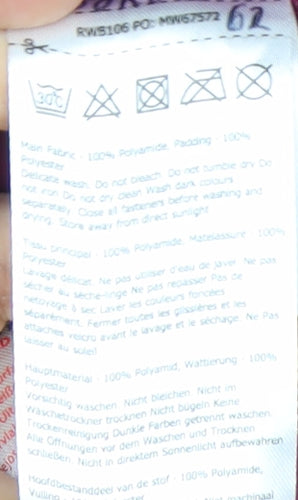 RW5106 PO: MW67572 62
30°C
Main Fabric - 100% Polyamide, Padding - 100%
Polyester
Delicate wash. Do not bleach. Do not tumble dry Do
not iron Do not dry clean Wash dark colours
separately. Close all fasteners before washing and
drying. Store away from direct sunlight
Tissu principal - 100% Polyamide, Matelassure - 100%
Polyester
Lavage délicat. Ne pas utiliser d'eau de javel. Ne pas
sécher au sèche-linge Ne pas repasser Pas de
nettoyage à sec Laver les couleurs foncées
séparément. Fermer toutes les glissières et les
attaches velcro avant le lavage et le séchage. Ne Pas
laisser au soleil
Hauptmaterial - 100% Polyamid, Wattierung - 100%
Polyester
Vorsichtig waschen. Nicht bleichen. Nicht im
Waschetrockner trocknen Nicht bügeln Keine
Trockenreinigung Dunkle Farben getrennt waschen.
Alle Öffnungen vor dem Waschen und Trocknen
schließen. Nicht in direktem Sonnenlicht aufbewahren
Hoofdbestanddeel van de stof - 100% Polyamide,
Vulling - 100% Polyester
machinaal